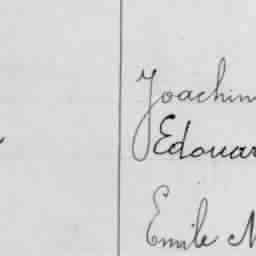 Joachim
Edouar
Emile M